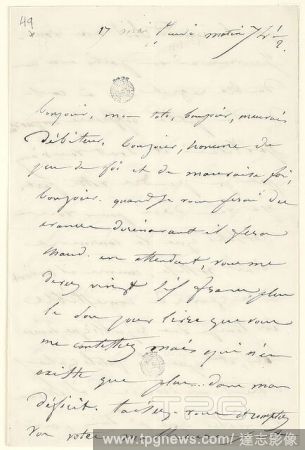 49
17 mai, lundi matin 7h ½
Bonjour, mon toto, bonjour, mauvais
débiteur, bonjour, homme de
peu de foi et de mauvaise foi,
bonjour. quand je vous ferai des
avances dorénavant il fera
chaud. en attendant, vous me
devez vingt sept francs plus
le don pour livre que vous
me contestez mais qui n'en
existe que plus dans mon
déficit. tâchez
votre
TPG
www.tpgnews.com/達志影像